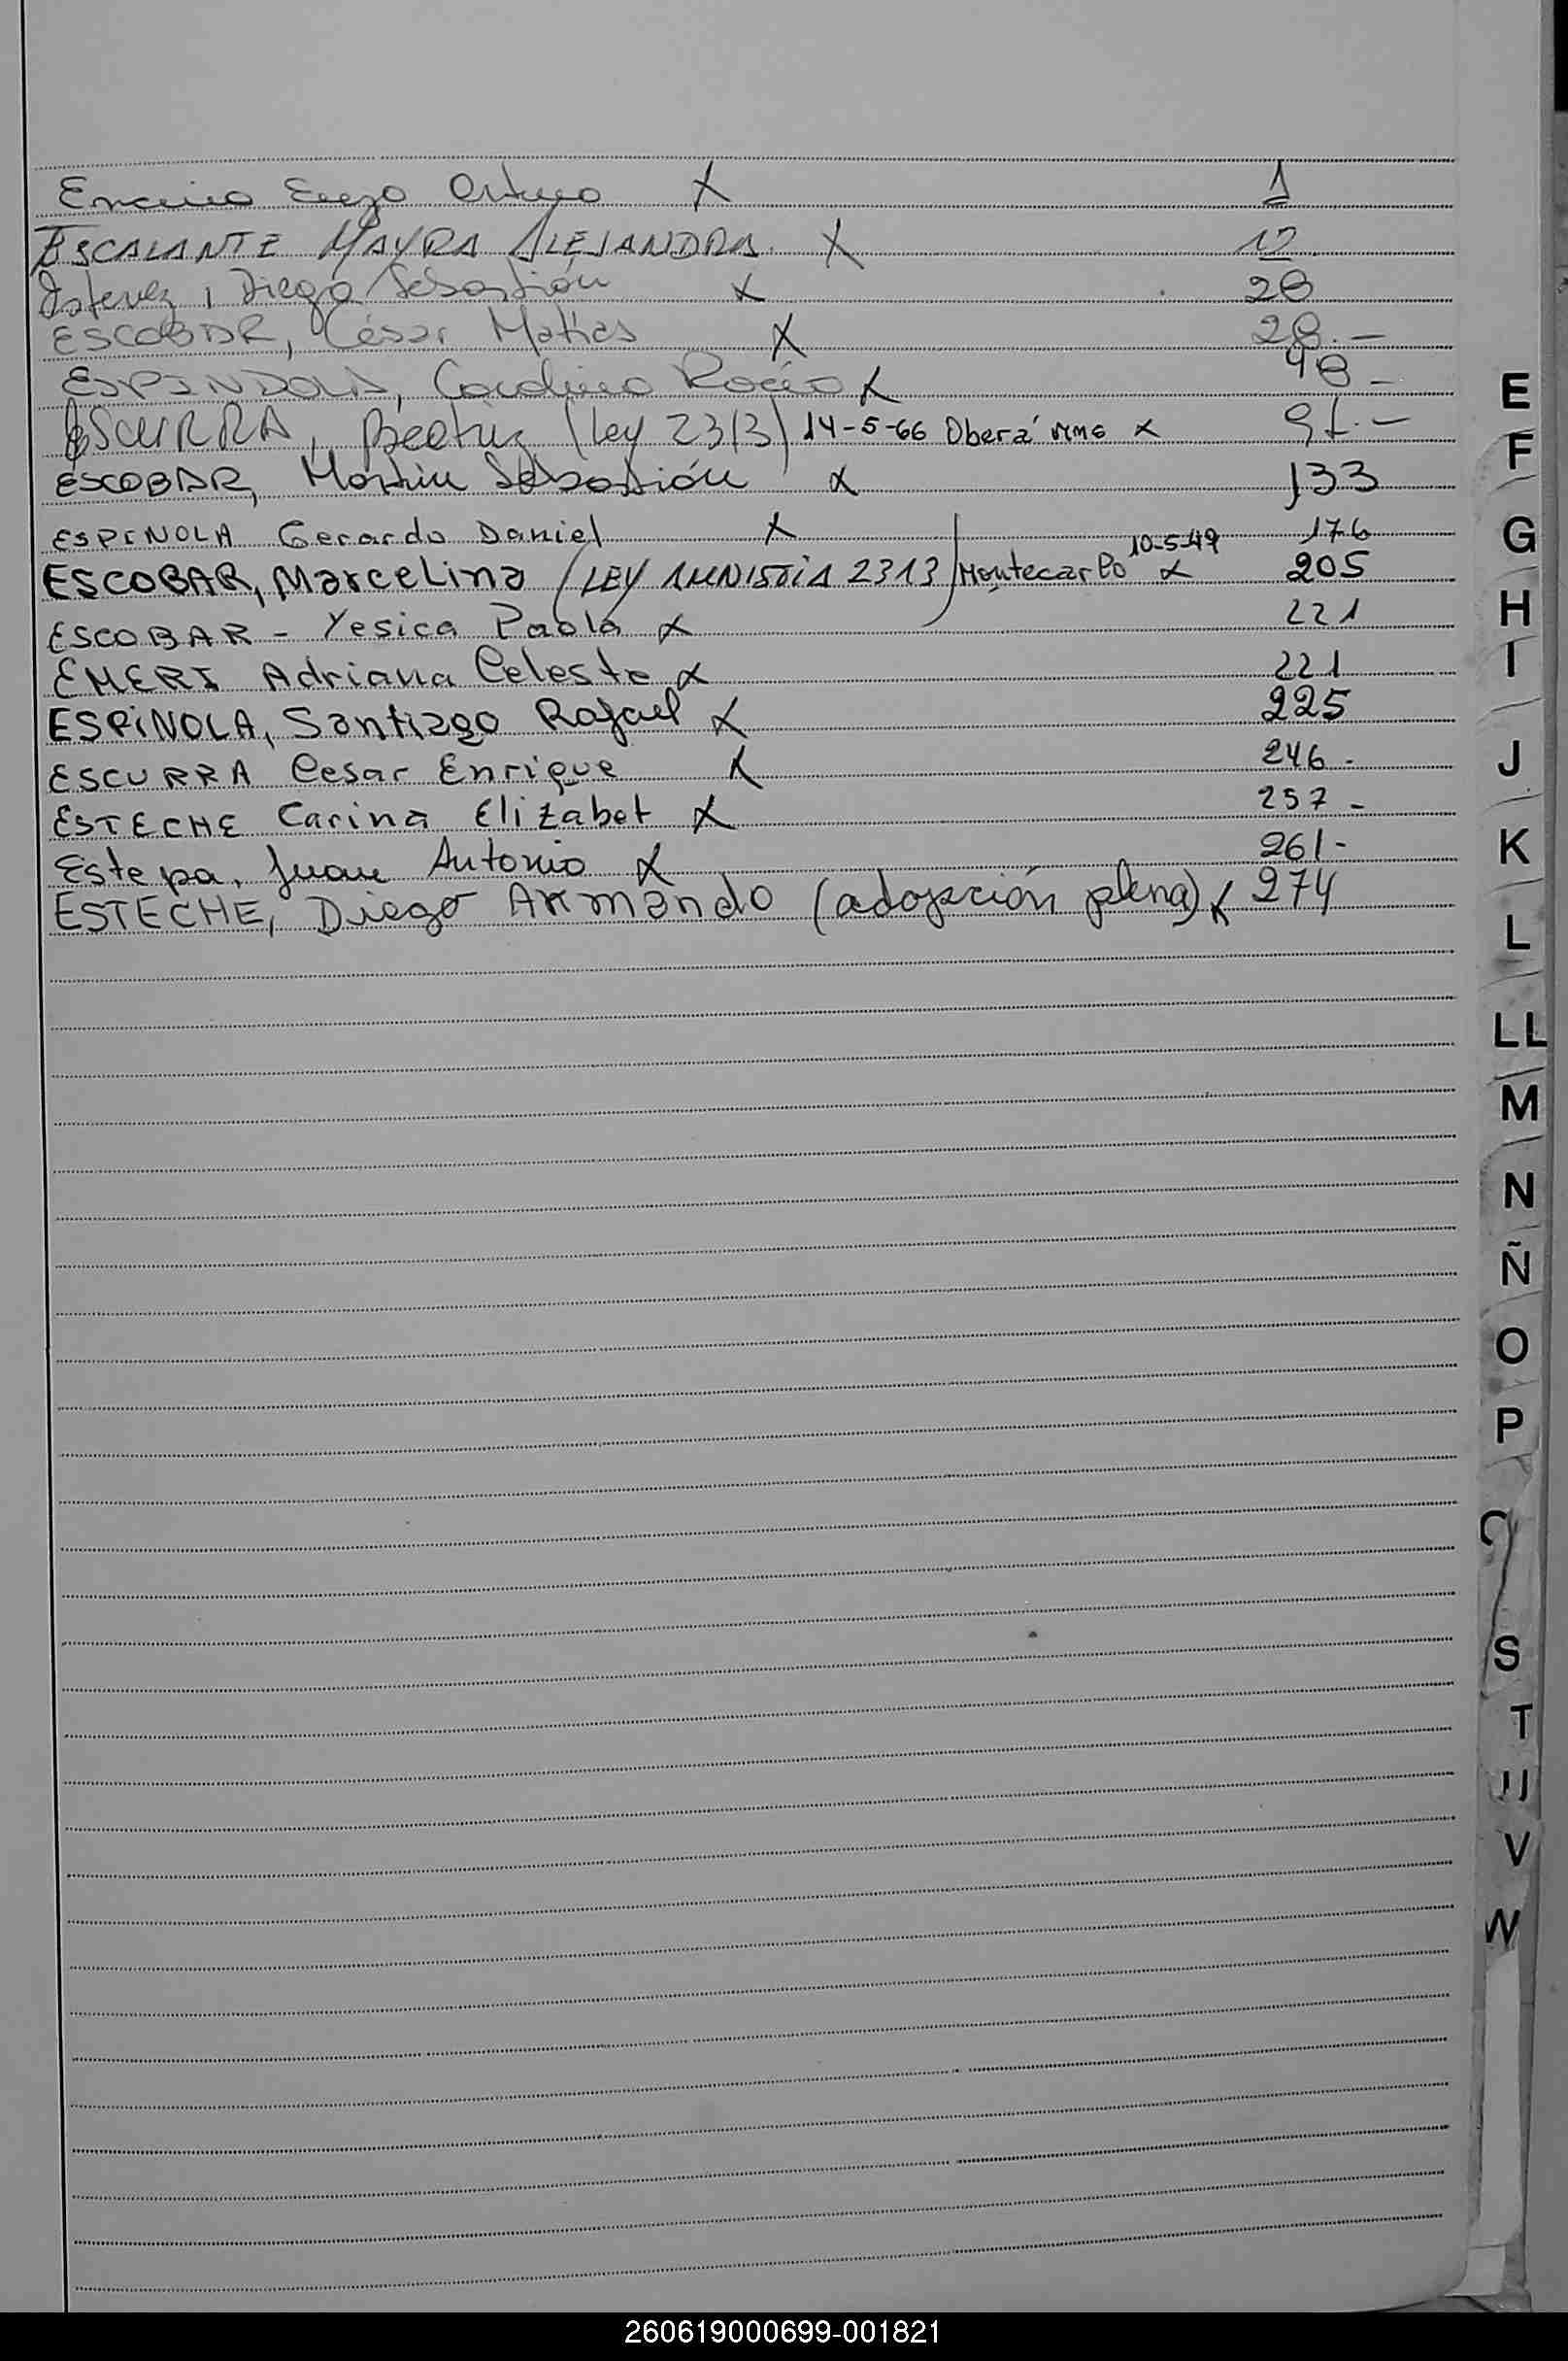 Encina Enzo Arturo X 1
ESCALANTE MAYRA ALEJANDRA. X 12
Estevez, Diego Sebastián X 28
ESCOBAR, César Matías X 28.-
ESPINDOLA, Carolina Rocío X 48-
ESCURRA, Beatriz (Ley 2313) 14-5-66 Oberá mns X 91.-
ESCOBAR, Martin Sebastián X 133
ESPINOLA Gerardo Daniel X 176
ESCOBAR, Marcelina (LEY AMNISTIA 2313) Montecarlo 10-5-49 X 205
ESCOBAR - Yesica Paola X 221
EMERI Adriana Celeste X 221
ESPINOLA, Santiago Rafael X 225
ESCURRA Cesar Enrique X 246-
ESTECHE Carina Elizabet X 257-
Estepa, Juan Antonio X 261-
ESTECHE, Diego Armando (adopción plena) X 274
E
F
G
H
I
J
K
L
LL
M
N
Ñ
O
P
Q
S
T
U
V
W
260619000699-001821